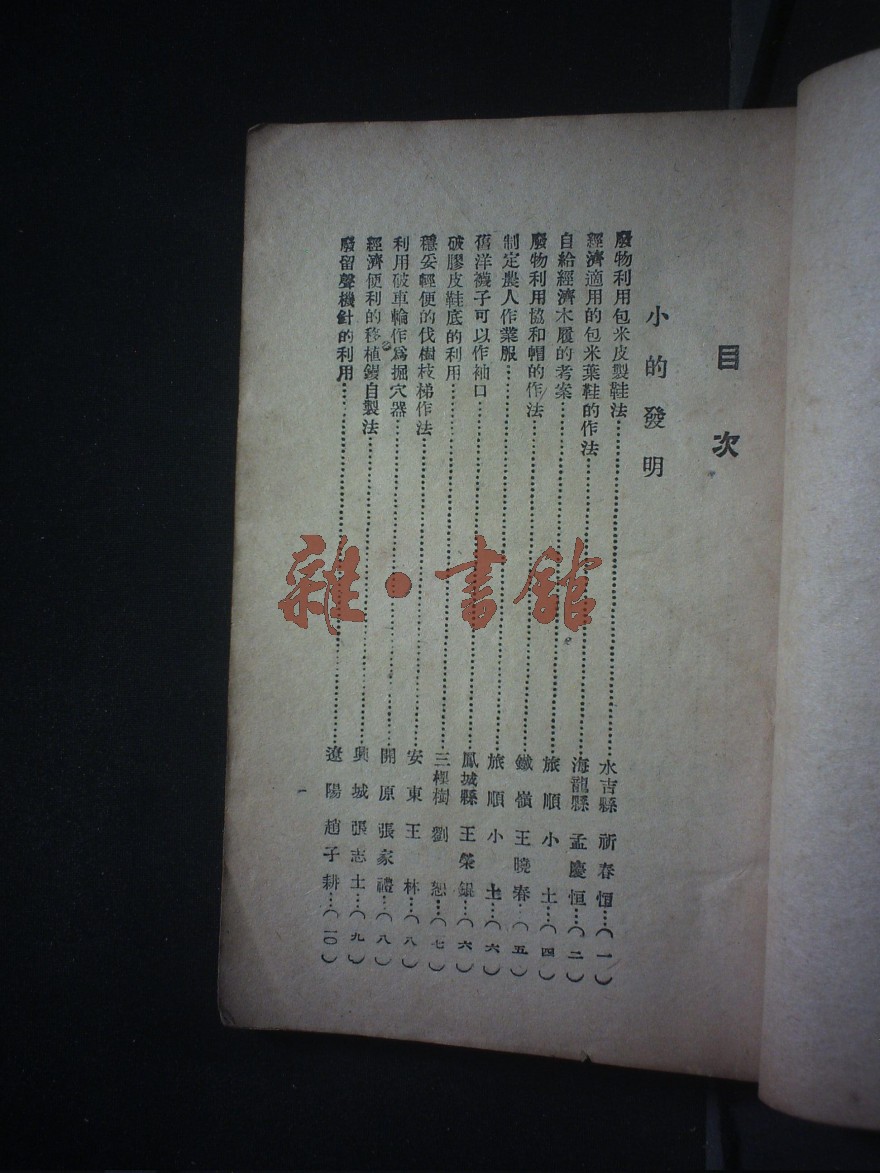 目次
小的發明
廢物利用包米皮製鞋法……水吉縣 祈春恒…(一)
經濟適用的包米葉鞋的作法……海龍縣 孟慶恒…(二)
自給經濟木履的考案……旅順 小土…(四)
廢物利用協和帽的作法……鐵嶺 王曉春…(五)
制定農人作業服……旅順 小土…(六)
舊洋襪子可以作袖口……鳳城縣 王榮錕…(六)
破膠皮鞋底的利用……三棵樹 劉恕…(七)
穩妥輕便的伐樹枝梯作法……安東 王林…(八)
利用破車輪作爲掘穴器……開原 張家禮…(八)
經濟便利的移植鏝自製法……興城 張志士…(九)
廢留聲機針的利用……遼陽 趙子耕…(一〇)
一
雜·書館